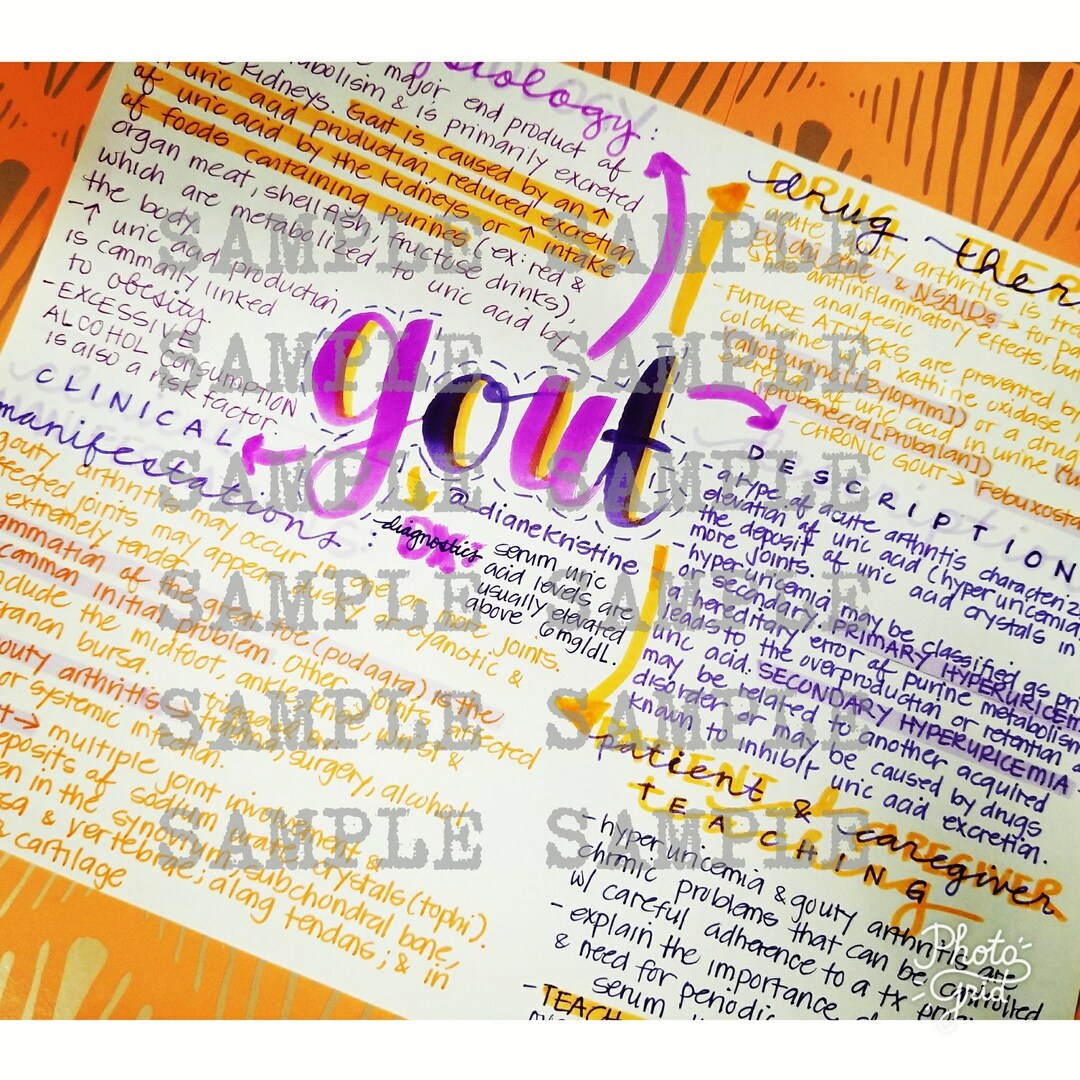 ology:
major end product of
metabolism & is primarily excreted
kidneys. Gout is caused by an ↑
of uric acid production, reduced excretion
of uric acid by the kidneys or ↑ intake
of foods containing purines (ex: red &
organ meat, shellfish, fructose drinks),
which are metabolized to uric acid by
the body
-↑ uric acid production
is commonly linked
to obesity.
-EXCESSIVE
ALCOHOL CONSUMPTION
is also a risk factor.
gout
@dianekristine
CLINICAL
manifestations:
gouty arthritis may occur in one or more joints.
affected joints may appear dusky or cyanotic &
extremely tender
inflammation of the great toe (podagra) is the
common initial problem. Other joints affected
include the midfoot, ankle, knee, wrist &
olecranon bursa.
gouty arthritis → triggered by
trauma, surgery, alcohol
or systemic infection.
→ multiple joint involvement &
deposits of sodium urate crystals (tophi).
in the synovium, subchondral bone,
& vertebrae; along tendons; & in
& cartilage
diagnostics
serum uric
acid levels are
usually elevated
above 6 mg/dL.
drug
- acute gouty arthritis is
& NSAIDs → for
↳ has antiinflammatory effects, but
analgesic
- FUTURE ATTACKS are prevented by
colchicine, a xathine oxidase
(allopurinol [zyloprim]) or a drug
of uric acid in urine
(probenecid [Probalan])
-CHRONIC GOUT →
DESCRIPTION
-a type of acute arthritis
elevation of uric acid (hyperuricemia
the deposit of uric acid crystals in
more joints.
-hyperuricemia may be classified as
or secondary. PRIMARY
a hereditary error of purine metabolism
leads to the overproduction or retention
uric acid. SECONDARY HYPERURICEMIA
may be related to another acquired
disorder or may be caused by drugs
known to inhibit uric acid excretion.
patient & caregiver
TEACHING
- hyperuricemia & gouty arthritis are
chronic problems that can be controlled
w/ careful adherence to a tx
- explain the importance
& need for periodic
serum
SAMPLE SAMPLE
SAMPLE SAMPLE
SAMPLE SAMPLE
SAMPLE SAMPLE
SAMPLE SAMPLE
SAMPLE SAMPLE
Photo
Grid